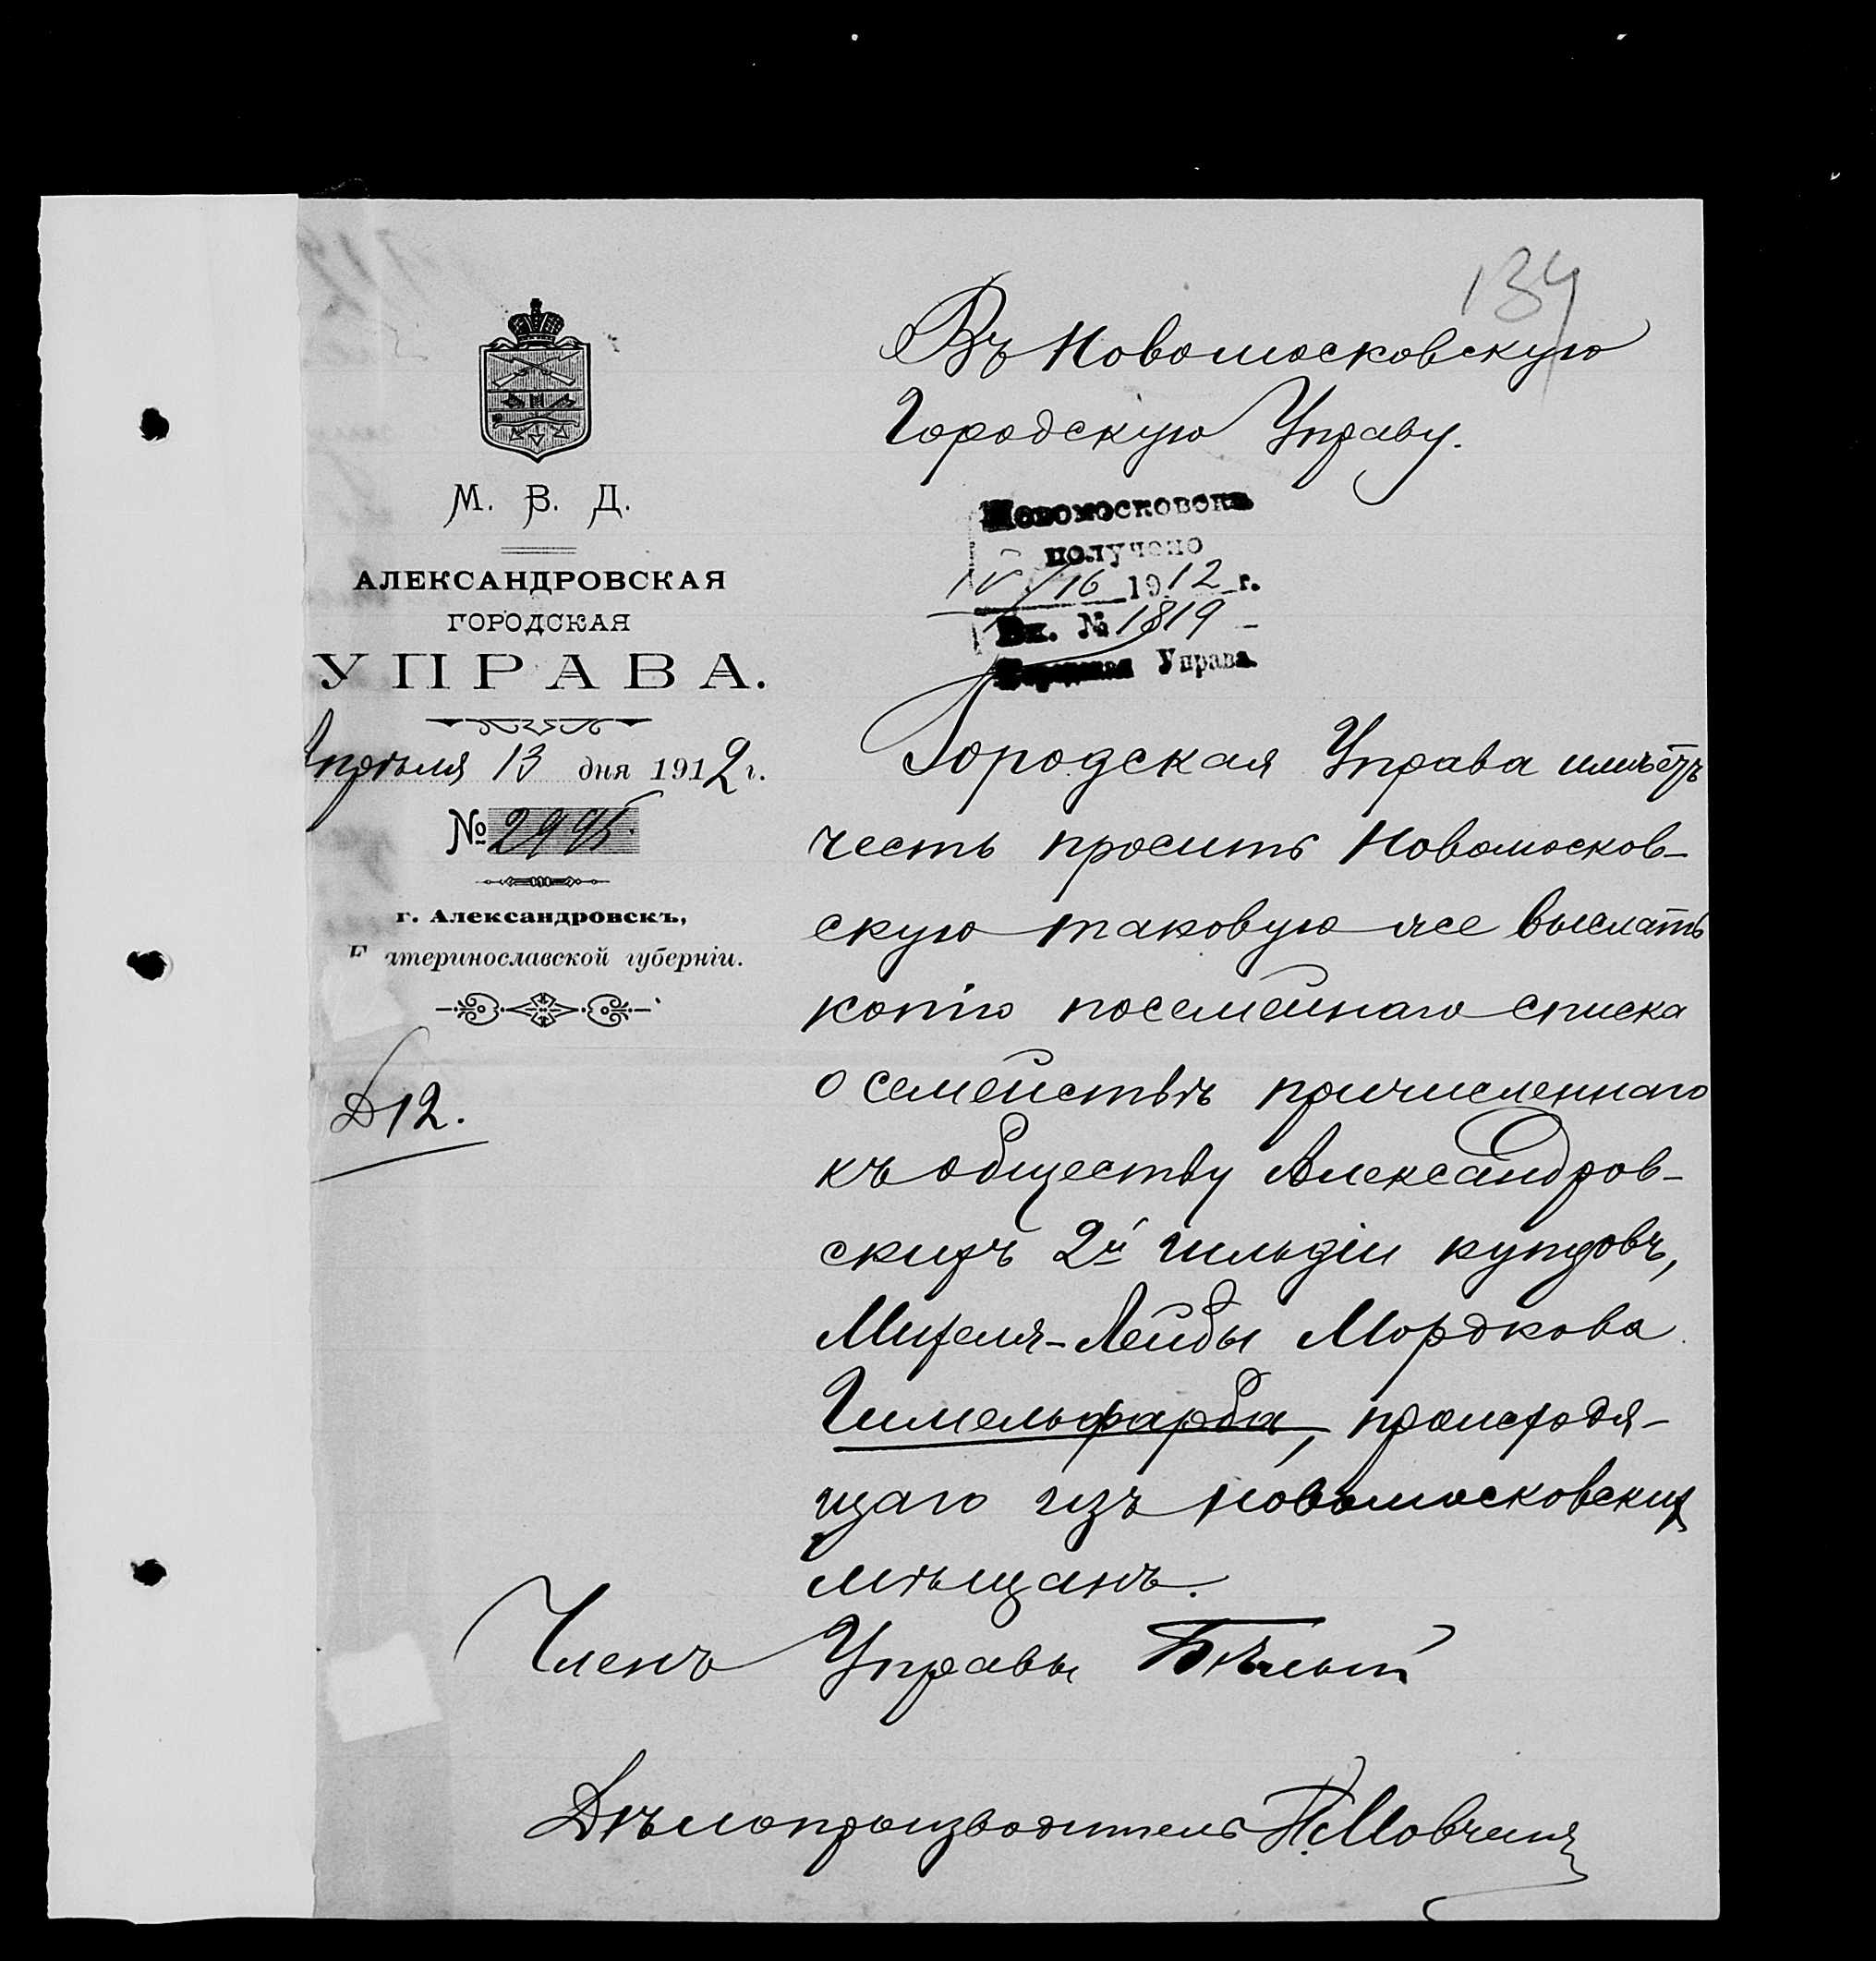 134
Въ Новомосковскую
Городскую Управу.
М. В. Д.
АЛЕКСАНДРОВСКАЯ
ГОРОДСКАЯ
УПРАВА.
Апрѣля 13 дня 1912 г.
№ 2995.
г. Александровскъ,
Екатеринославской губерніи.
Д 12.
Новомосковскъ
получено
IV/16 1912 г.
Вх. № 1819
Городская Управа.
Городская Управа имѣетъ
честь просить Новомосков-
скую таковую же выслать
копію посемейнаго списка
о семействѣ причисленнаго
къ обществу Александров-
скихъ 2й гильдіи купцовъ,
Михеля-Лейбы Мордкова
Гимельфарба, происходя-
щаго изъ новомосковских
мѣщанъ.
Членъ Управы Бѣлый
Дѣлопроизводитель